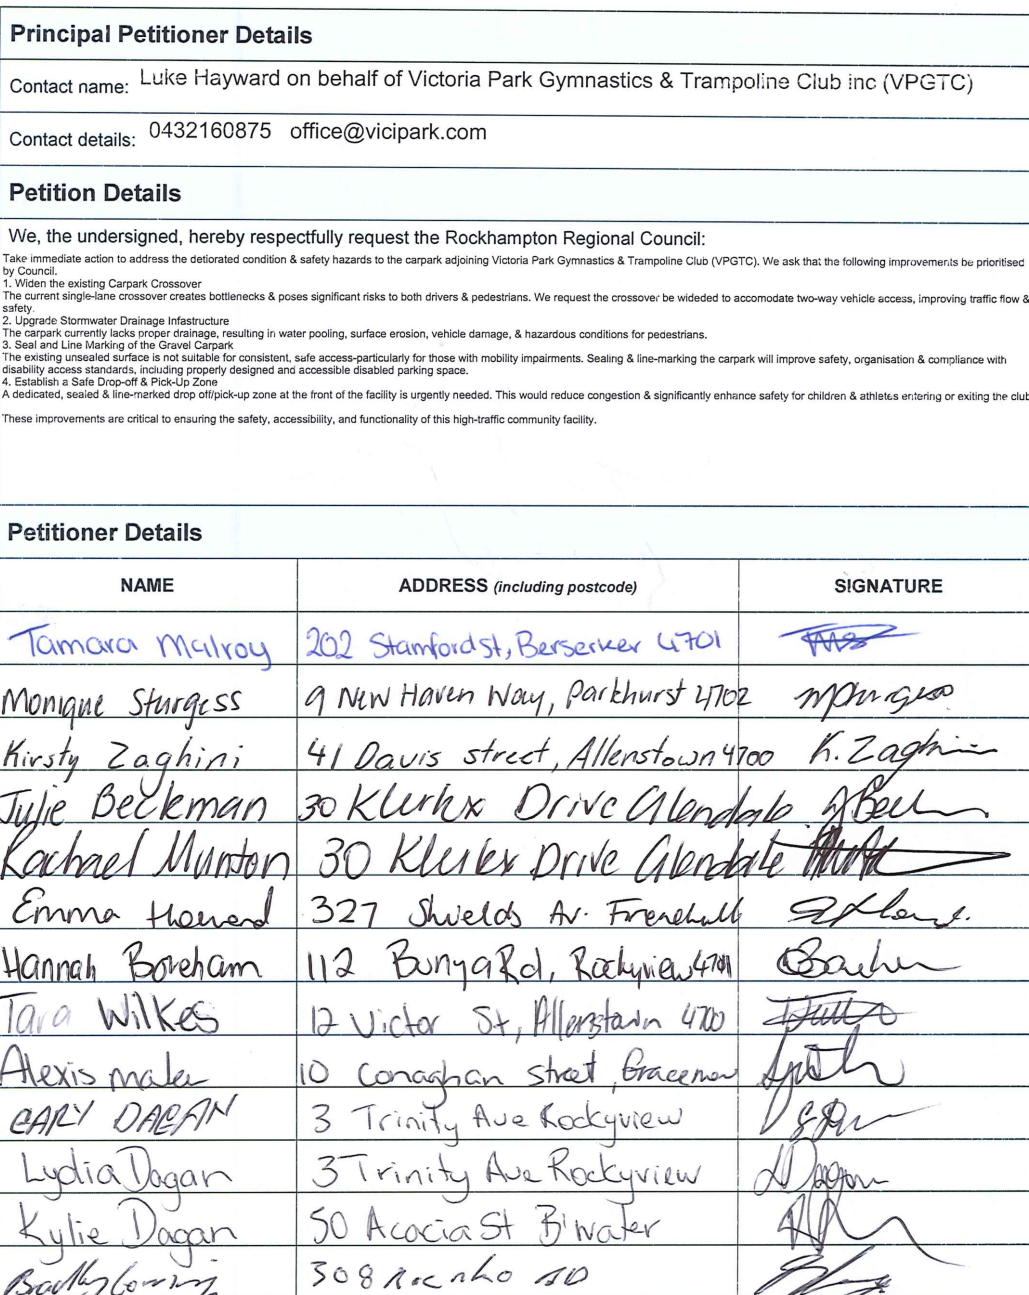 Principal Petitioner Details
Contact name: Luke Hayward on behalf of Victoria Park Gymnastics & Trampoline Club inc (VPGTC)
Contact details: 0432160875 office@vicipark.com
Petition Details
We, the undersigned, hereby respectfully request the Rockhampton Regional Council:
Take immediate action to address the detiorated condition & safety hazards to the carpark adjoining Victoria Park Gymnastics & Trampoline Club (VPGTC). We ask that the following improvements be prioritised
by Council.
1. Widen the existing Carpark Crossover
The current single-lane crossover creates bottlenecks & poses significant risks to both drivers & pedestrians. We request the crossover be wideded to accomodate two-way vehicle access, improving traffic flow &
safety.
2. Upgrade Stormwater Drainage Infastructure
The carpark currently lacks proper drainage, resulting in water pooling, surface erosion, vehicle damage, & hazardous conditions for pedestrians.
3. Seal and Line Marking of the Gravel Carpark
The existing unsealed surface is not suitable for consistent, safe access-particularly for those with mobility impairments. Sealing & line-marking the carpark will improve safety, organisation & compliance with
disability access standards, including properly designed and accessible disabled parking space.
4. Establish a Safe Drop-off & Pick-Up Zone
A dedicated, sealed & line-marked drop off/pick-up zone at the front of the facility is urgently needed. This would reduce congestion & significantly enhance safety for children & athletes entering or exiting the club
These improvements are critical to ensuring the safety, accessibility, and functionality of this high-traffic community facility.
Petitioner Details
NAME ADDRESS (including postcode) SIGNATURE
Tamara Malroy 202 Stamford st, Berserker 4701
Monique Sturgess 9 New Haven Way, Parkhurst 4702
Kirsty Zaghini 41 Davis street, Allenstown 4700 K. Zaghini
Julie Beckman 30 Drive Glendale
Rachael Munton 30 Drive Glendale
Emma Howard 327 Shields Av. Frenchville
Hannah Boreham 112 Bunya Rd, Rockyview 4701
Tara Wilkes 12 Victor St, Allenstown 4700
Alexis 10 Conaghan street, Gracemere
3 Trinity Ave Rockyview
Lydia Dagan 3 Trinity Ave Rockyview L Dagan
Kylie Dagan 50 Acacia St B'water
308